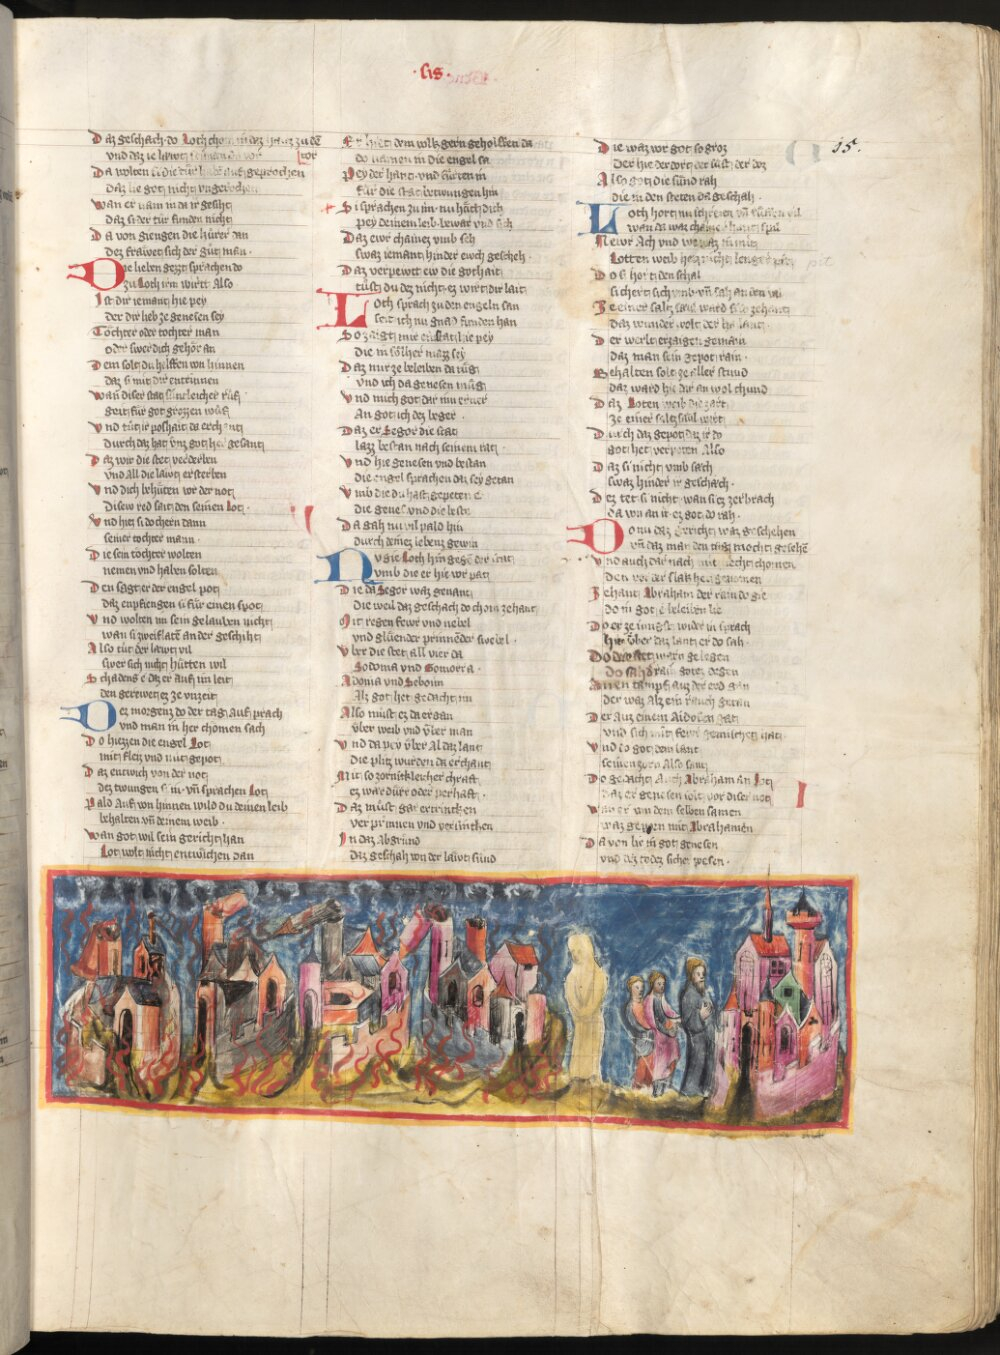 ·sis·
15.
Daz geschach do Loth chom in daz haus zu der
und daz ie lawt vor tor
Da wolten si die tür habn auf geprochen
daz lie got nicht ungerochen
Wan er nam in da ir gesicht
daz si der tür funden nicht
Da von giengen die hürer dan
Dez frawet sich der gut man·
Die lieben gezt sprachen do
zu Loth irm wirtt Also
Ist dir iemant hie pey
der dir heb ze genesen sey
Tochter oder tochter man
oder swer dich gehör an
Dem solt du helffen von hinnen
daz si mit dir entrinnen
Wan diser stat
geit für got grozzen
Und
Durch daz hat unz got her gesant
Daz wir die stet verderben
und All die lawt ersterben
Und dich behüten vor der not
Disew red sait den seinen Lot·
Und hiez si do chern dann
seiner tochter mann·
Die sein tochter wolten
nemen und haben solten
Den sagt er der engel pot
daz enpfiengen si für einen spot
Und wolten im sein gelauben nicht
wan si zweiflatē an der geschiht
Also tut der lawt vil
swer sich nicht hütten wil
Schadens e daz er auf im leit
den gerewet ez ze unzeit
Dez morgenz do der tag auf prach
und man in her chomen sach
Do hiezzen die engel Lot
mit fleiz und mit gepot
Daz entwich von der not
dez twungen si in· vn̄ sprachen Lot
Pald auf von hinnen wild du deinen leib
behalten vn̄ deinem weib·
Wan got wil sein gericht han
Lot wolt nicht entwichen dan
Er hiet dem volk gern geholffen da
do namen in die engel sa
Pey der hant· und furten in
für die stat betwungen hin
Si sprachen zu im· nu hüt dich
pey deinem leib· bewar und sich
Daz ewr chainez umb sech
swaz iemant hinder ewch gescheh·
Daz verpewtt ew die gothait
tust du dez nicht· ez wirt dir lait
Loth sprach zu den engeln san
seit ich nu gnad funden han
So zaigt mir ein stat hie pey
die in solher mazz sey
Daz mir ze beleiben da tüg
und ich da genesen müg
Und mich got dar inn erner
An got ich dez beger·
Daz er Segor die stat
lazz bestan nach seinem rat·
Und hie genesen und bestan
die engel sprachen daz sey getan
Umb die du hast gepeten e
die genes und die beste
Da gah nu vil pald hin
durch deinez lebenz gewin
Nu gie Loth hin gegē der stat
umb die er hie wr pat
Die da Segor waz genant
die weil daz geschach do chom zehant
Mit regen fewr und nebel
und glüender prinnēder swebel·
Uber die stet all vier da
Sodoma und Gomorra·
Adonia und Seboim
Alz got het gedacht im
Also müst ez da ergan
über weib und über man
Und da pey über al daz lant
die plitz wurden da erchant
Mit so zornikleicher chraft
ez wär dürr oder perhaft·
Daz müst gar ertrincken
verprinnen und versinchen
In daz Abgrund
daz geschah von der lawt sünd
Die waz vor got so groz
Der hie der dort der sust der doz
Also got die sünd rah
die in den steten da geschah·
Loth hort nu schreien vn̄ ruffen vil
wan da waz chainer hant spil
Newr Ach und we waz in mit
Lotten weib her nicht lenger pit
Do si hort den schal
si chert sich umb· vn̄ sah an den val
Ze einer saltz saul ward si ze hant
daz wunder wolt der hailant·
Der werlt erzaigen gemain
daz man sein gepot rain·
Behalten solt ze aller stund
daz ward hie dar an wol chund
Daz Loten weib die zart
ze einer saltz saul wart
Durch daz gepot daz ir do
got het verpoten Also
Daz si nicht umb sach
swaz hinder ir geschach·
Dez tet si nicht· wan si ez zerbrach
da von an ir· ez got do rah·
Do nu daz gericht waz geschehen
vn̄ daz man den tag mocht gesehē
Und auch dar nach mit recht chomen
Den von der slaf het genomen
Zehant Abraham der rain do gie
do in got e beleiben lie
Do er ze iungst wider in sprach
hin über daz lant er do sah·
Do die stet warn gelegen
do sah der rain gotez degen
Ainen tampf auz der erd gan
der waz alz ein rauch getan
Der auz einem Aidoven gat
und sich mit fewr gemischet hat·
Und do got dem lant
seinen zorn Also sant
Do gedacht Auch Abraham an Lot
daz er genesen solt vor diser not
Wan er von dem selben samen
waz gepern mit Abrahamen
Da von lie in got genesen
und dez todez sicher wesen·